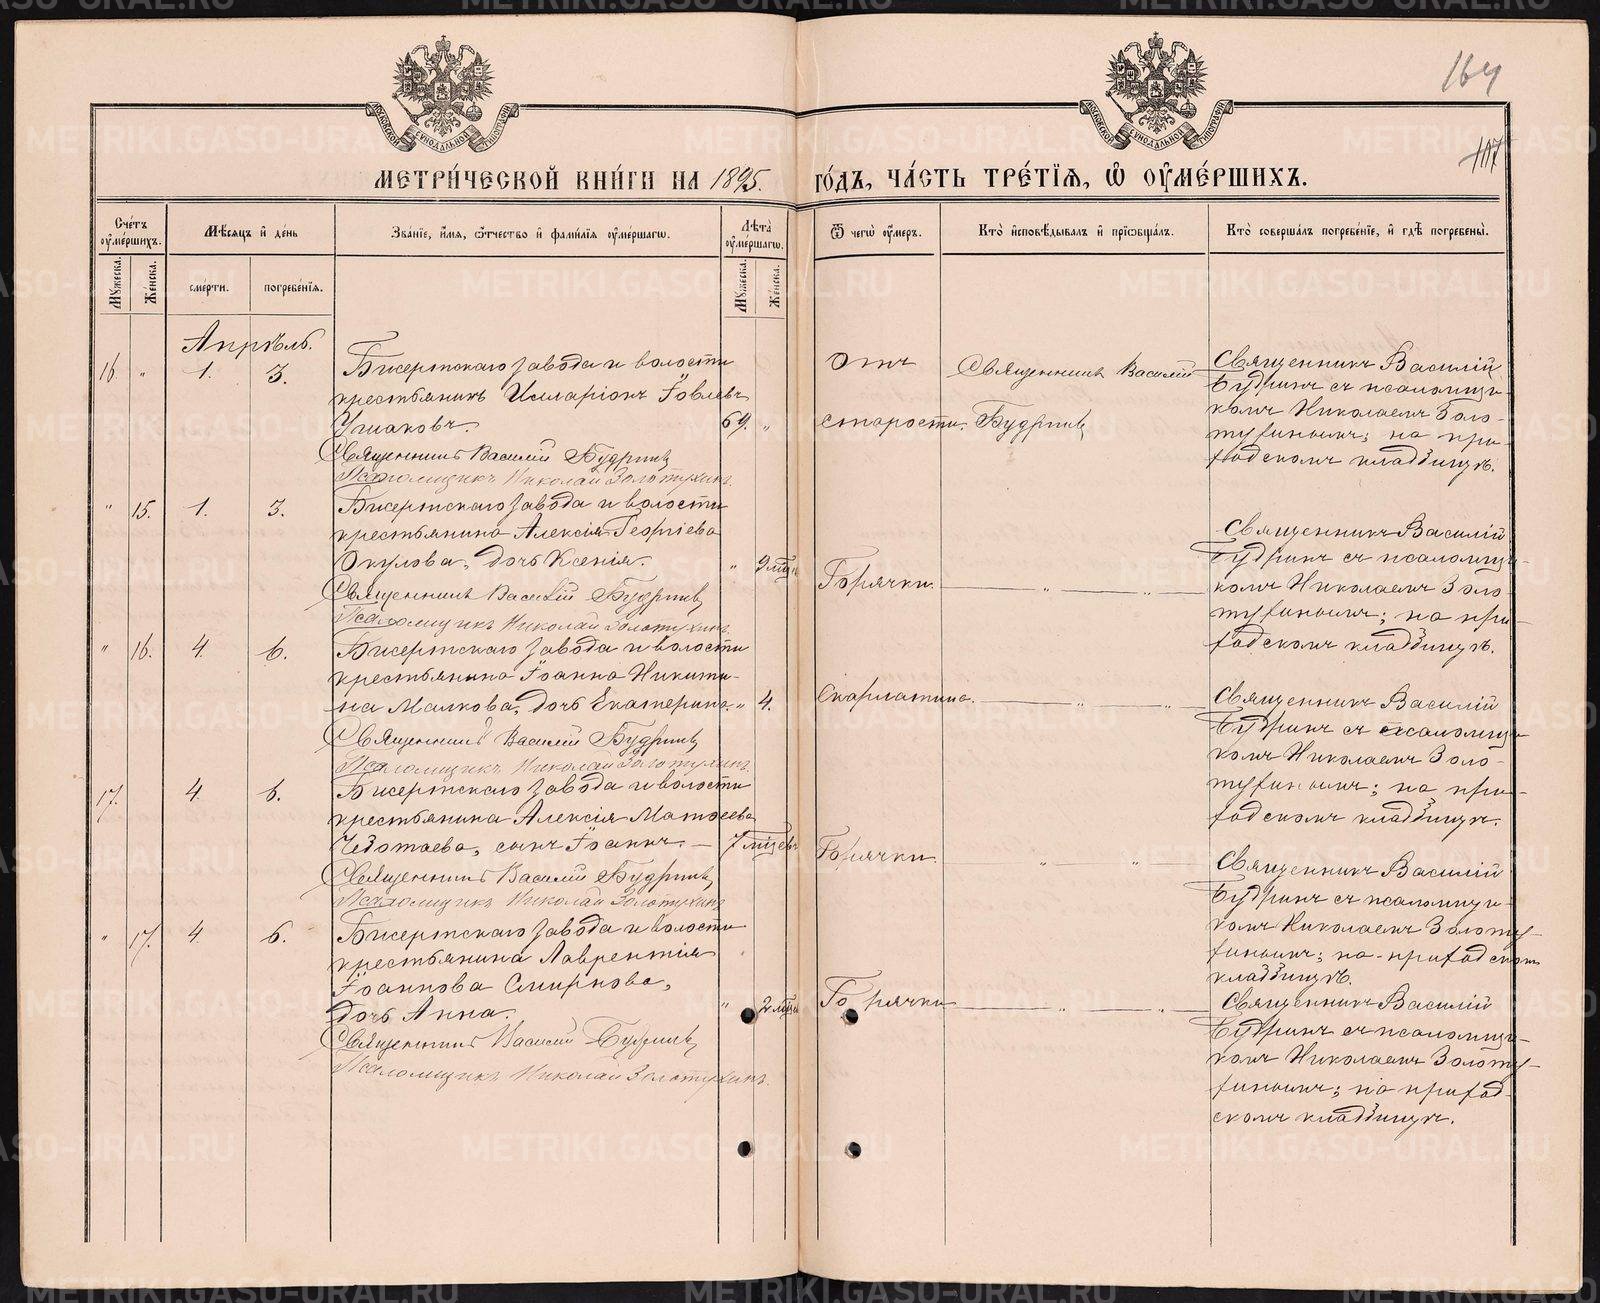 164
107
МЕТРИ́ЧЕСКОЙ КНИ́ГИ НА 1895. ГО́ДЪ, ЧА́СТЬ ТРЕ́ТІѦ, Ѡ ОУ҆МЕ́РШИХЪ.
Сче́тъ оу҆ме́ршихъ.
Мѣ́сяцъ и҆ де́нь
Зва́нїе, и҆́мѧ, ѻ҆́тчество и҆ фами́лїѧ оу҆ме́ршагѡ.
Лѣ́та оу҆ме́ршагѡ.
Ѿ чегѡ̀ оу҆́меръ.
Кто̀ и҆сповѣ́дывалъ и҆ прїѡбща́лъ.
Кто̀ соверша́лъ погребе́нїе, и҆ гдѣ̀ погребены̀.
Му́жеска.
Же́нска.
сме́рти.
погребе́нїѧ.
Му́жеска.
Же́нска.
Апрѣль.
16. " 1. 3.
Бисертскаго завода и волости
крестьянинъ Илларіонъ Іовлевъ
Ушаковъ. 69. "
Священникъ Василій Будринъ
Псаломщикъ Николай Золотухинъ.
Отъ
старости.
Священникъ Василій
Будринъ
Священникъ Василій
Будринъ съ псаломщи-
комъ Николаемъ Золо-
тухинымъ; на при-
ходскомъ кладбищѣ.
" 15. 1. 3.
Бисертскаго завода и волости
крестьянина Алексія Георгіева
Окулова, дочь Ксенія. " 9 мѣся
Священникъ Василій Будринъ
Псаломщикъ Николай Золотухинъ.
Горячки. " "
Священникъ Василій
Будринъ съ псаломщи-
комъ Николаемъ Золо
тухинымъ; на при-
ходскомъ кладбищѣ.
" 16. 4. 6.
Бисертскаго завода и волости
крестьянина Іоанна Никити-
на Малкова, дочь Екатерина. " 4.
Священникъ Василій Будринъ
Псаломщикъ Николай Золотухинъ.
Скарлатина. " "
Священникъ Василій
Будринъ съ псаломщи-
комъ Николаемъ Золо-
тухинымъ; на при-
ходскомъ кладбищѣ.
17. 4. 6.
Бисертскаго завода и волости
крестьянина Алексія Матѳеева
Чеботаева, сынъ Іоаннъ. — 7 мѣсев
Священникъ Василій Будринъ
Псаломщикъ Николай Золотухинъ
Горячки. " "
Священникъ Василій
Будринъ съ псаломщи-
комъ Николаемъ Золоту-
хинымъ; на приходскомъ
кладбищѣ.
" 17. 4. 6.
Бисертскаго завода и волости
крестьянина Лаврентія
Іоаннова Смирнова,
дочь Анна. " 2 мѣся
Священникъ Василій Будринъ
Псаломщикъ Николай Золотухинъ.
Горячки " "
Священникъ Василій
Будринъ съ псаломщи-
комъ Николаемъ Золоту-
хинымъ; на приход-
скомъ кладбищѣ.
METRIKI.GASO-URAL.RU